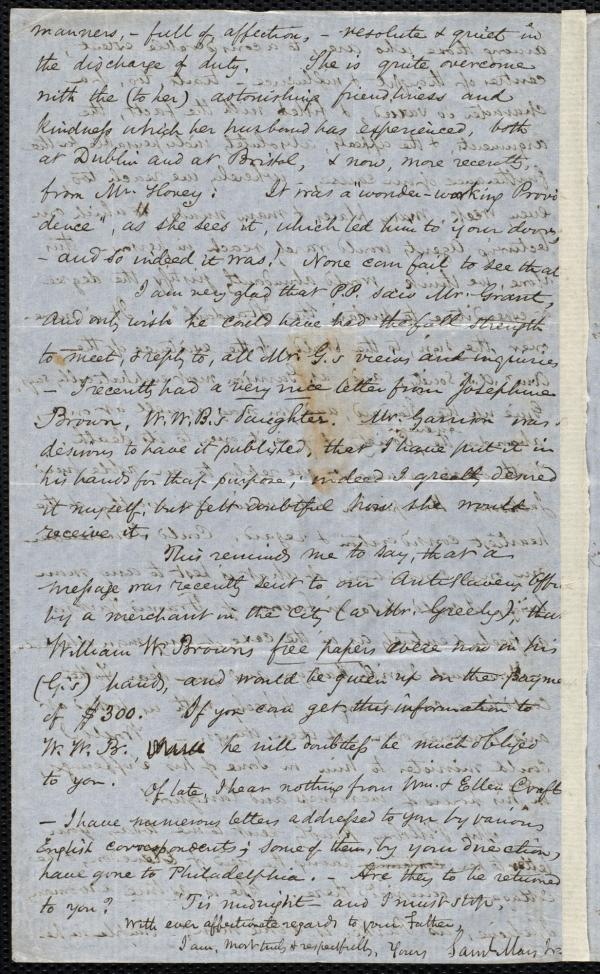 manners, - full of affection, - resolute & quiet in
the discharge of duty. She is quite overcome
with the (to her) astonishing friendliness and
kindness which her husband has experienced, both
at Dublin and at Bristol, & now, more recently,
from Mr. Hovey. It was a "wonder-working Provi
dence", as she sees it, which led him to your doors,
- and so indeed it was! None can fail to see that
I am very glad that P.P. saw Mr. Grant,
and only wish he could have had the full strength
to meet, & reply to, all Mr. G.'s views and inquiries
- I recently had a very nice letter from Josephine
Brown, W.W.B.'s daughter. Mr. Garrison was s
desirous to have it published, that I have put it in
his hands for that purpose; indeed I greatly desired
it myself, but felt doubtful how she would
receive it.
This reminds me to say, that a
message was recently sent to our AntiSlavery Offi
by a merchant in the City (a Mr. Greely), tha
William W. Brown's free papers were now in his
(G.'s) hand, and would be given up on the payme
of $300. If you can get this information to
W. W. B. he will doubtless be much obliged
to you.
Of late, I hear nothing from Wm. & Ellen Craft
- I have numerous letters addressed to you by various
English correspondents; some of them, by your direction,
have gone to Philadelphia. - Are they to be returned
to you? 'Tis midnight - and I must stop.
With ever affectionate regards to your Father,
I am, most truly & respectfully, Yours Saml. May Jr.